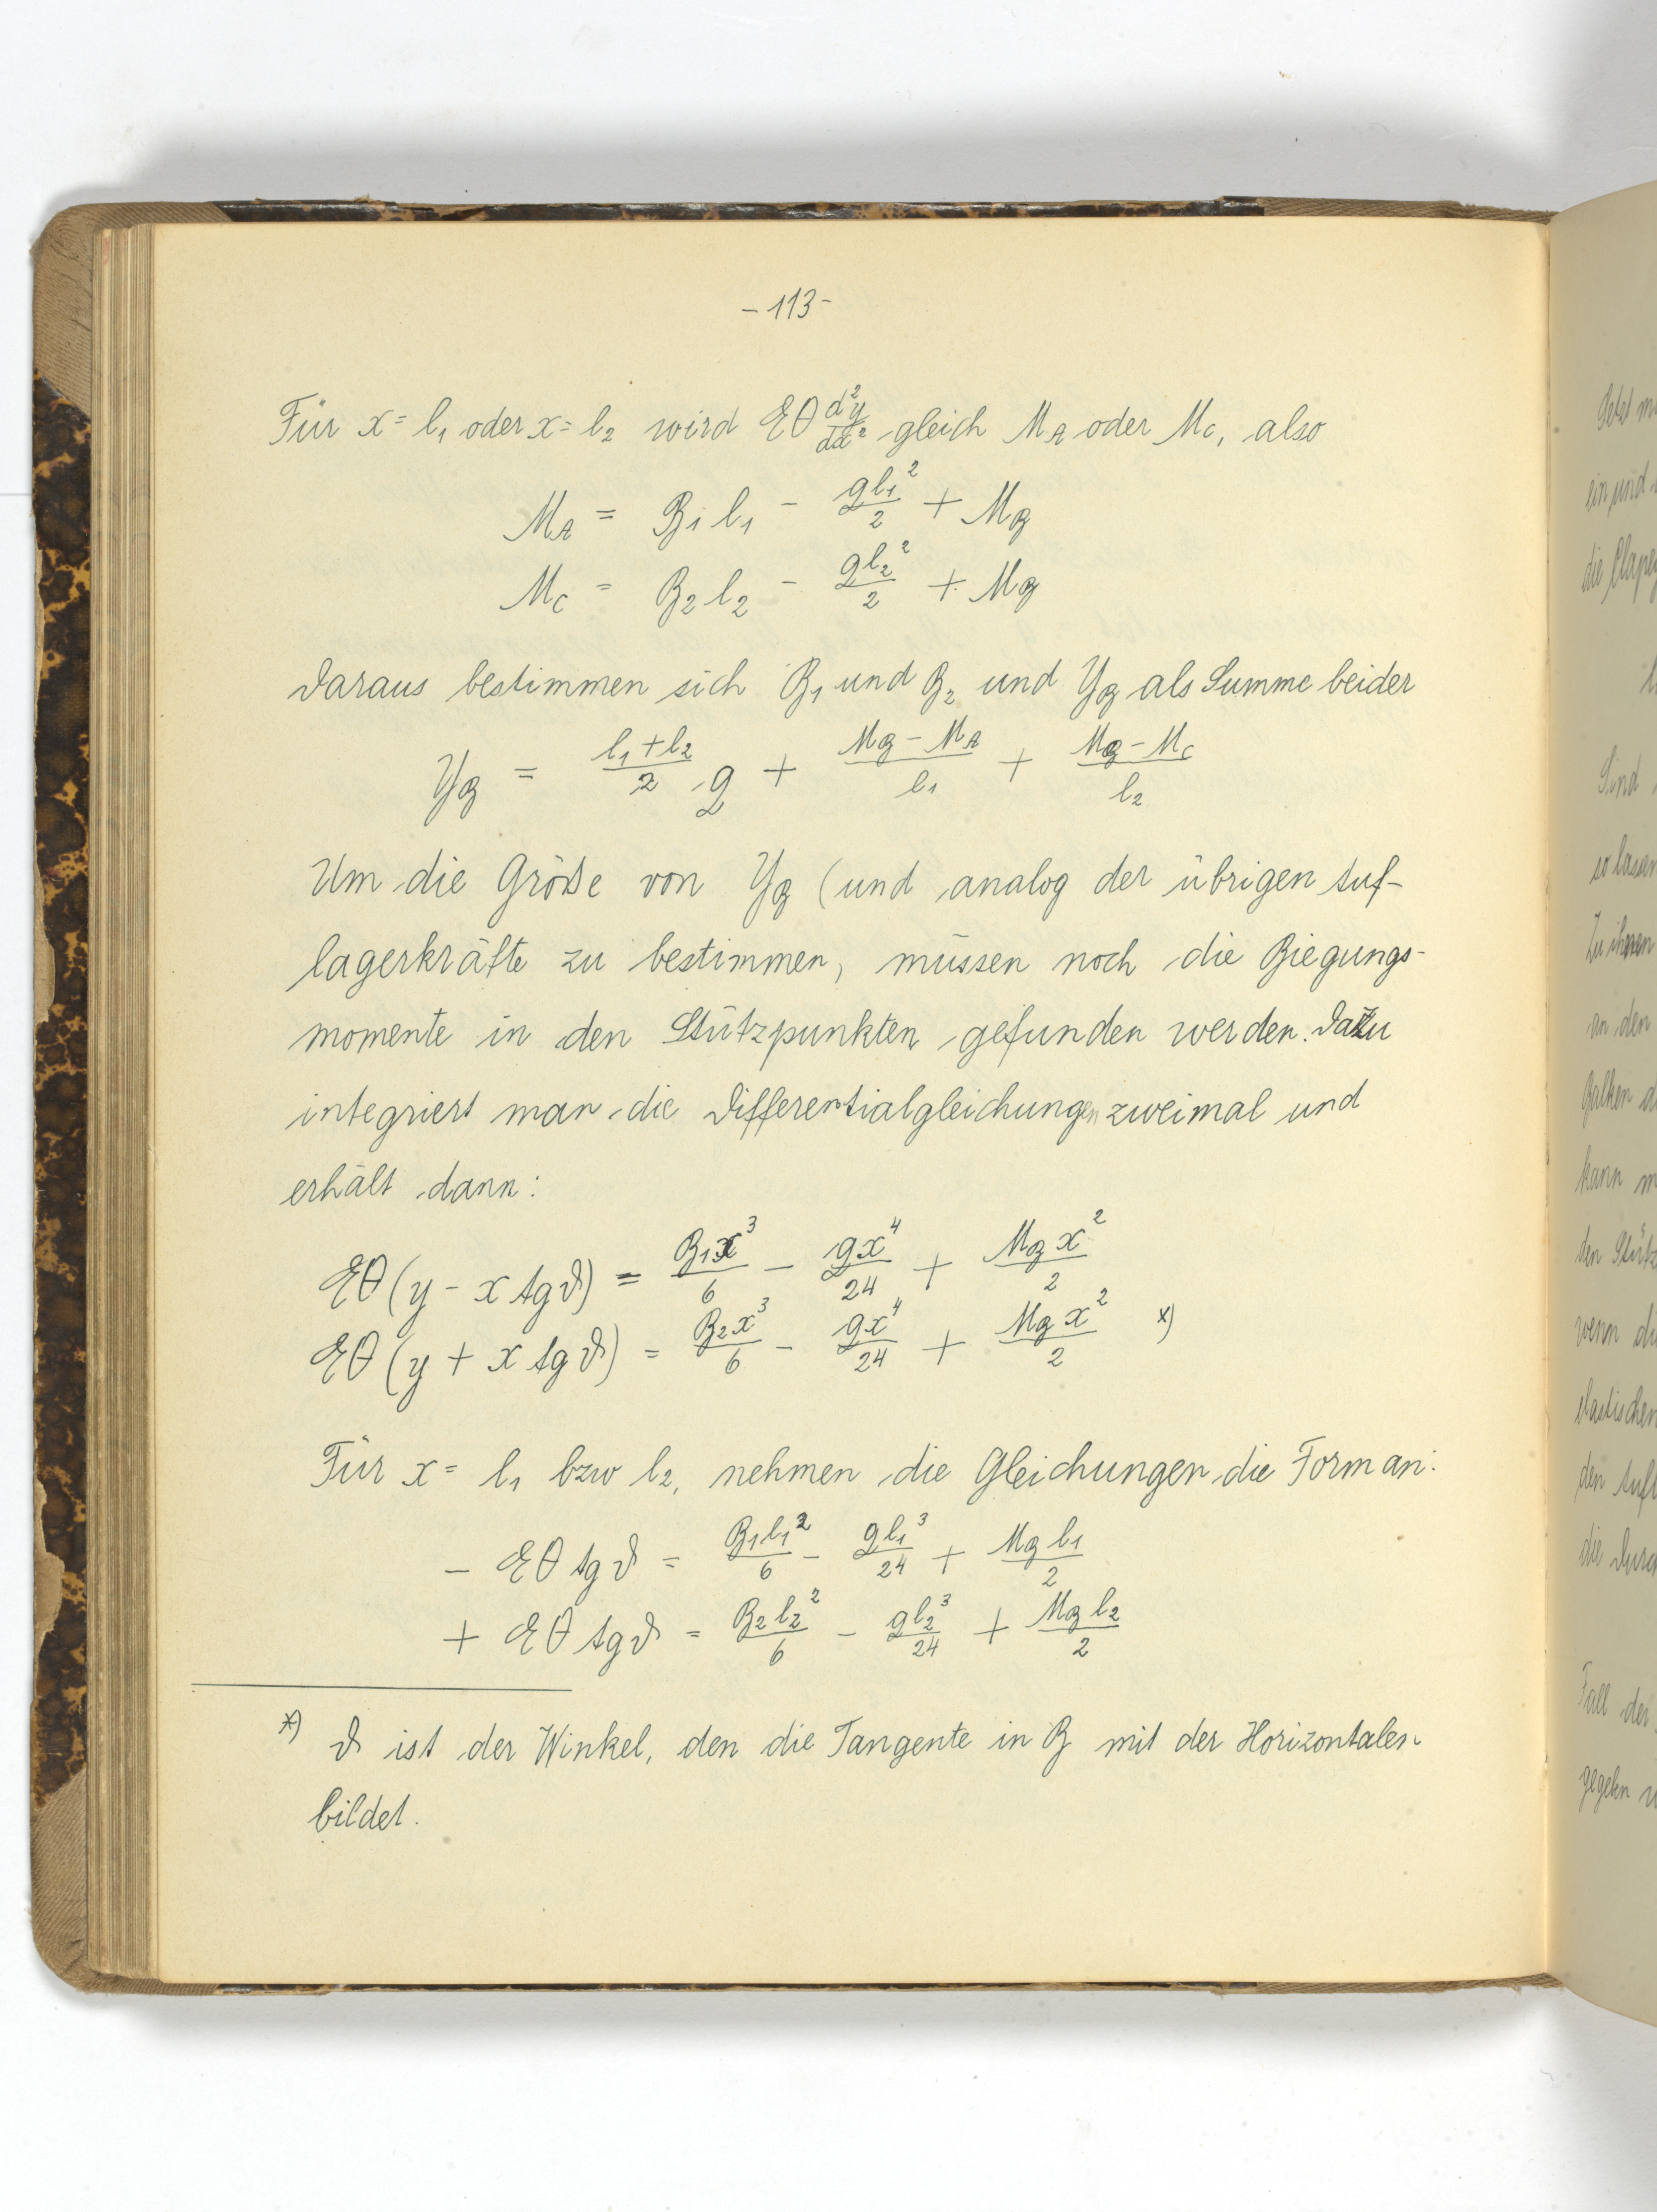 - 113 -
Für x = l₁ oder x = l₂ wird EΘ d²y/dx² gleich M_A oder M_C, also
M_A = B₁ l₁ - gl₁²/2 + M_B
M_C = B₂ l₂ - gl₂²/2 + M_B
Daraus bestimmen sich B₁ und B₂ und Y_B als Summe beider
Y_B = (l₁ + l₂)/2 g + (M_B - M_A)/l₁ + (M_B - M_C)/l₂
Um die Größe von Y_B (und analog der übrigen Auf-
lagerkräfte zu bestimmen, müssen noch die Biegungs-
momente in den Stützpunkten gefunden werden. Dazu
integriert man die Differentialgleichungen zweimal und
erhält dann:
EΘ (y - x tg ϑ) = B₁x³/6 - gx⁴/24 + M_B x²/2
EΘ (y + x tg ϑ) = B₂x³/6 - gx⁴/24 + M_B x²/2 *)
Für x = l₁ bzw l₂, nehmen die Gleichungen die Form an:
- EΘ tg ϑ = B₁l₁²/6 - gl₁³/24 + M_B l₁/2
+ EΘ tg ϑ = B₂l₂²/6 - gl₂³/24 + M_B l₂/2
*) ϑ ist der Winkel, den die Tangente in B mit der Horizontalen
bildet.
ein und
an den
kann
wenn
elastischen
den
die
Fall der